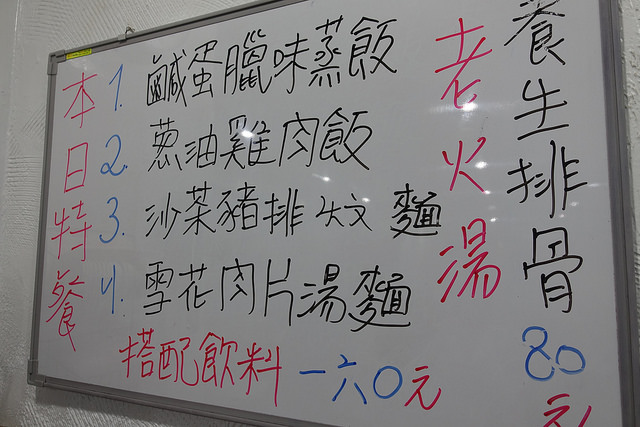 本日特餐
1. 鹹蛋臘味蒸飯
2. 蔥油雞肉飯
3. 沙茶豬排炆麵
4. 雪花肉片湯麵
搭配飲料一六〇元
老火湯
養生排骨
80元